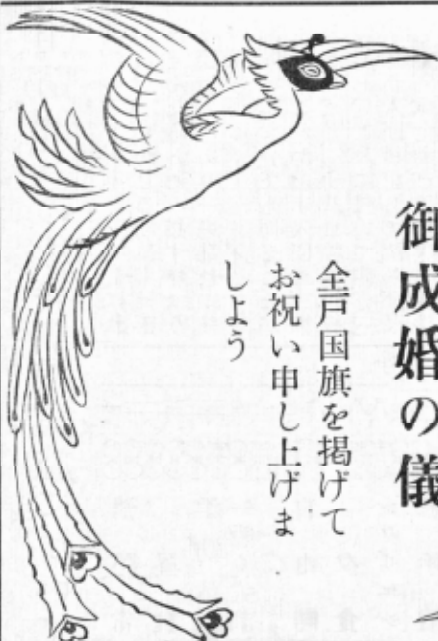 御成婚の儀
全戸国旗を掲げて
お祝い申し上げま
しよう